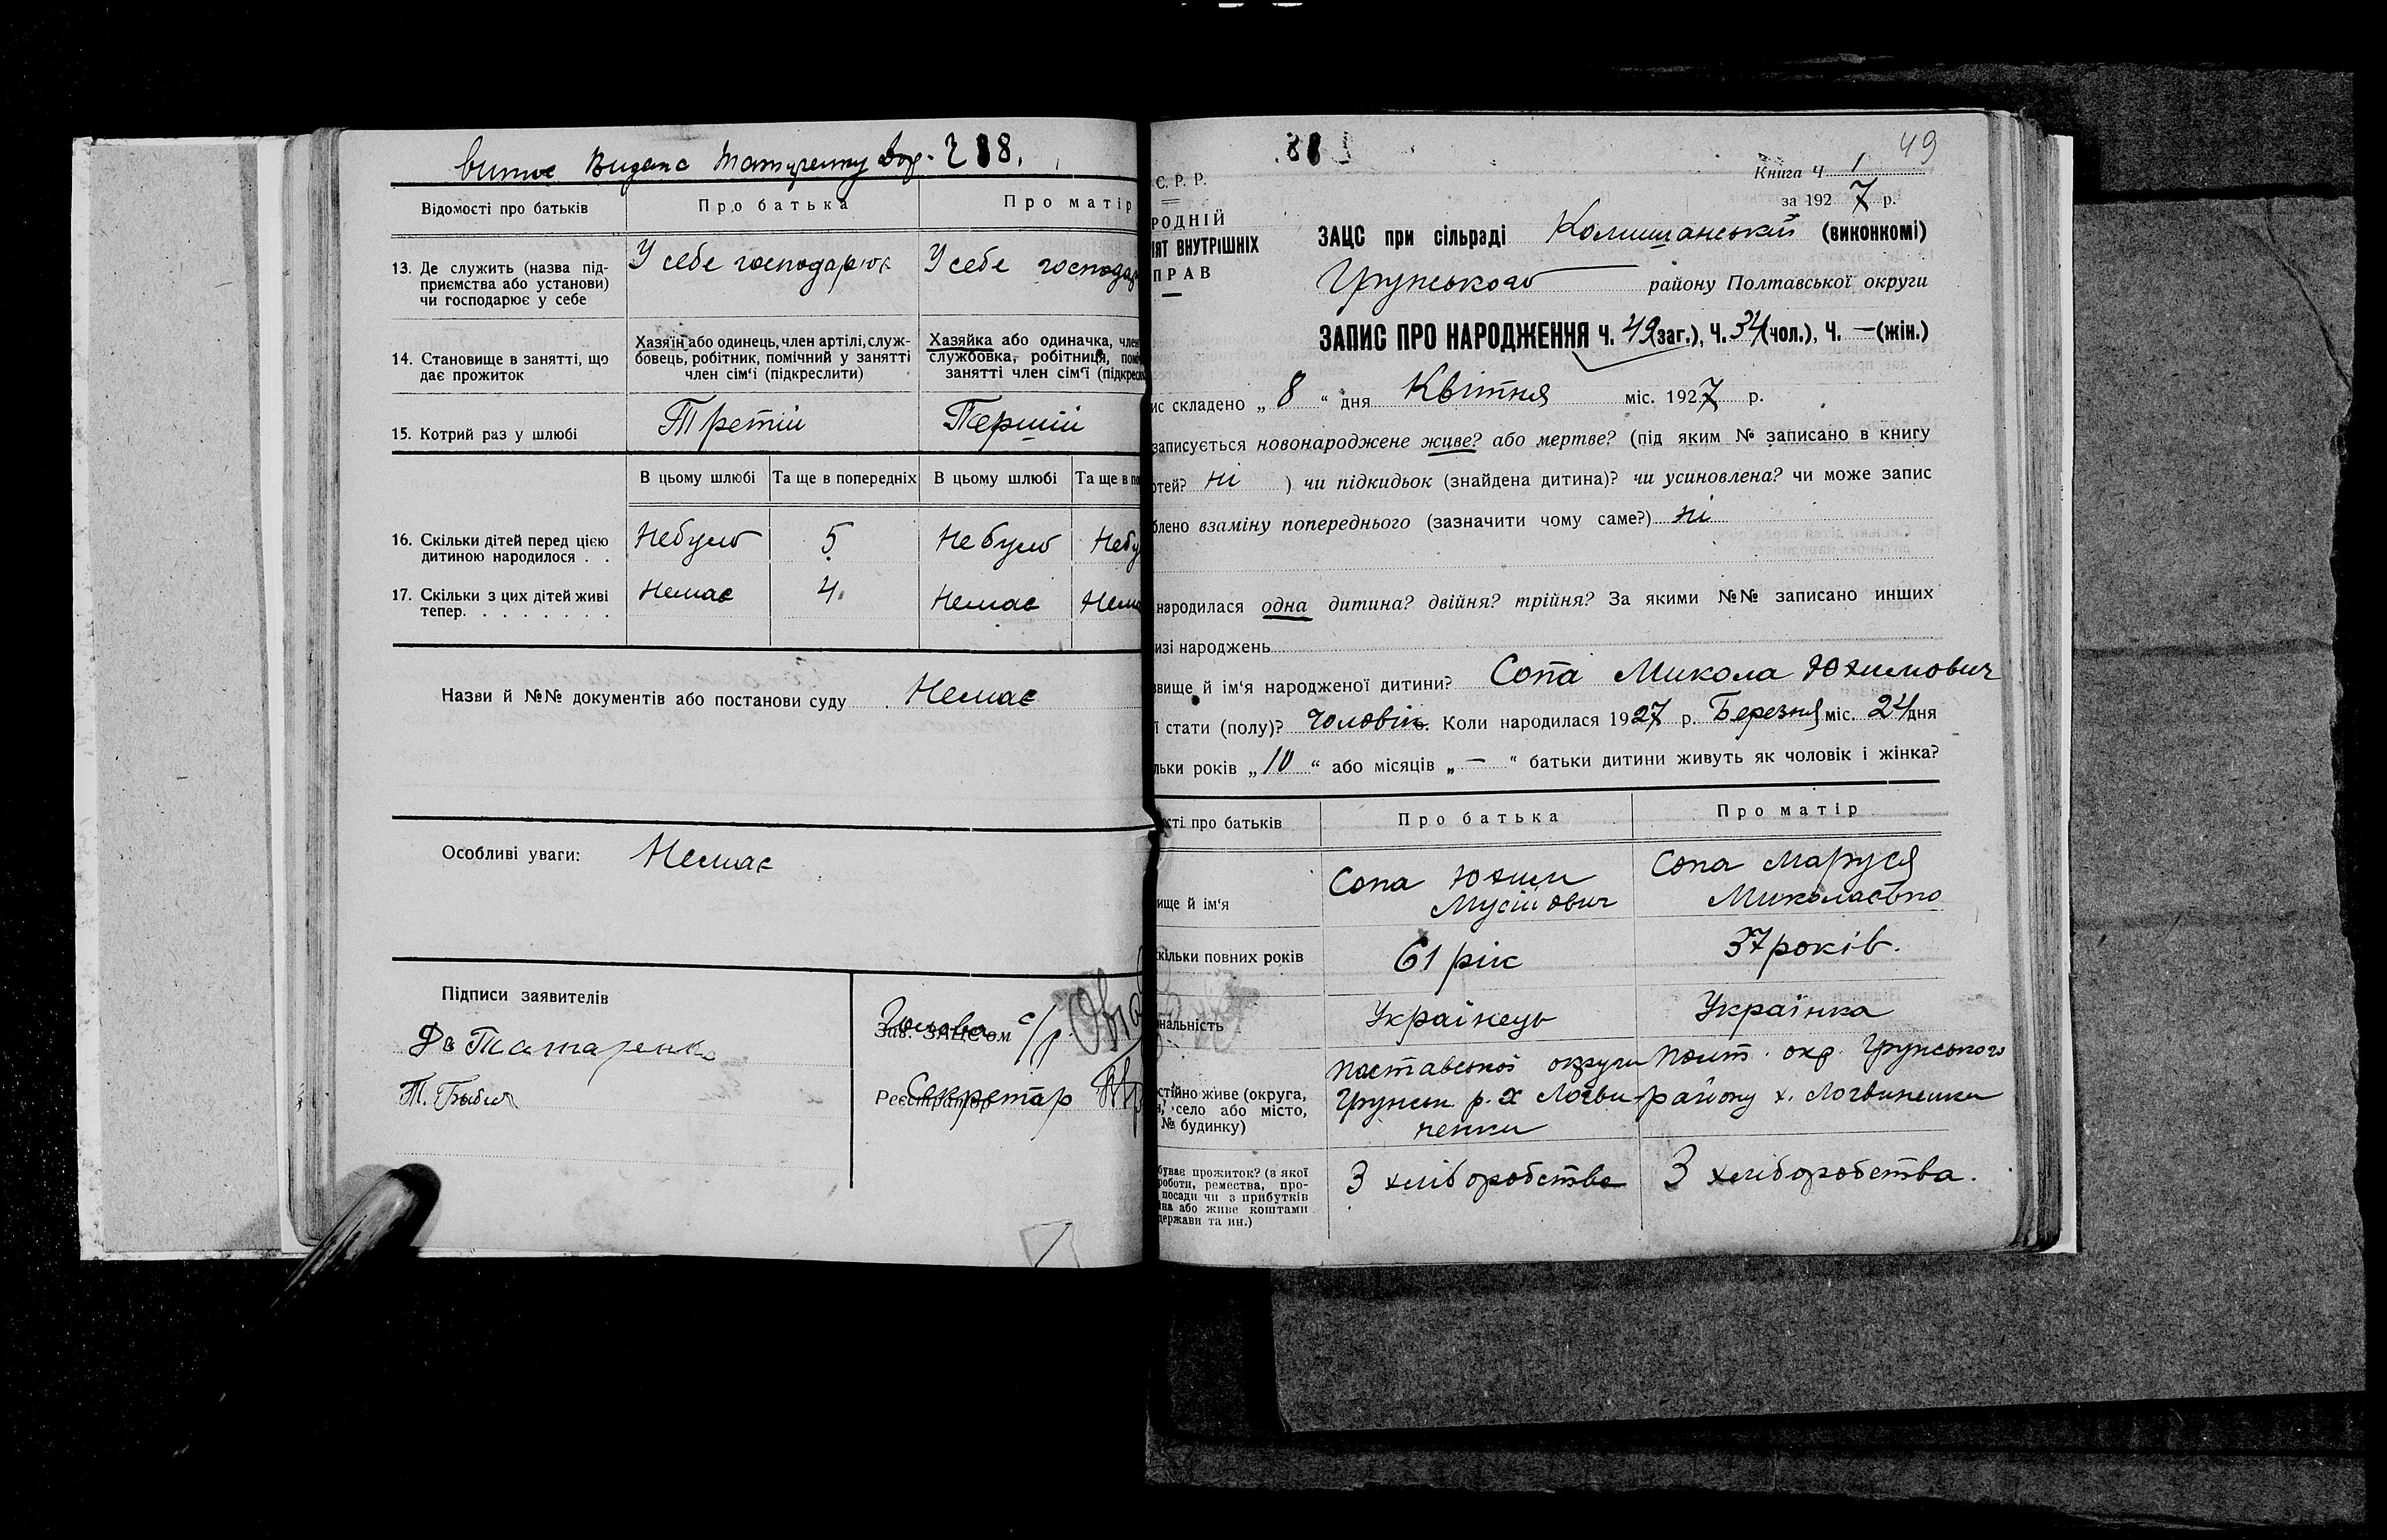 Видана
288.
Відомості про батьків
Про батька
Про матір
13. Де служить (назва під-
приємства або установи)
чи господарює у себе
У себе господарює
У себе господар
14. Становище в занятті, що
дає прожиток
Хазяїн або одинець, член артілі, служ-
бовець, робітник, помічний у занятті
член сім'ї (підкреслити)
Хазяйка або одиначка, член
службовка, робітниця, помі
занятті член сім'ї (підкресл
15. Котрий раз у шлюбі
Третій
Перший
В цьому шлюбі
Та ще в попередніх
В цьому шлюбі
Та ще в по
16. Скільки дітей перед цією
дитиною народилося . .
Небуло
5
Небуло
Небу
17. Скільки з цих дітей живі
тепер. . . . . . . .
Немає
4.
Немає
Нема
Назви й №№ документів або постанови суду Немає
Особливі уваги: Немає
Підписи заявителів
Татаренко
Т.
Голова с/р
Зав. ЗАЦС'ом
Реєстратор
Секретар
49
Книга Ч 1
за 1927 р.
С. Р. Р.
РОДНІЙ
ІЯТ ВНУТРІШНІХ
ПРАВ
ЗАЦС при сільраді Комишанській (виконкомі)
Грунського району Полтавської округи
ЗАПИС ПРО НАРОДЖЕННЯ Ч. 49 (заг.), Ч. 34 (чол.), Ч. — (жін.)
ис складено „ 8 “ дня Квітня міс. 1927 р.
записується новонароджене живе? або мертве? (під яким № записано в книгу
ртей? ні ) чи підкидьок (знайдена дитина)? чи усиновлена? чи може запис
блено взаміну попереднього (зазначити чому саме?) ні
народилася одна дитина? двійня? трійня? За якими №№ записано инших
изі народжень
звище й ім'я народженої дитини? Сопа Микола Юхимович
ї стати (полу)? Чоловік. Коли народилася 1927 р. Березня міс. 24 дня
льки років „ 10 “ або місяців „ — “ батьки дитини живуть як чоловік і жінка?
сті про батьків
Про батька
Про матір
ище й ім'я
Сопа Юхим
Мусійович
Сопа Маруся
Миколаєвна
кільки повних років
61 рік
37 років.
ональність
Українець
Українка
стійно живе (округа,
н, село або місто,
№ будинку)
Полтавської округи
Грунськ. р. х Логви-
ненки
Полт. окр. Грунського
району х. Логвиненки
буває прожиток? (з якої
роботи, ремества, про-
посади чи з прибутків
їна або живе коштами
держави та ин.)
З хліборобства
З хліборобства.